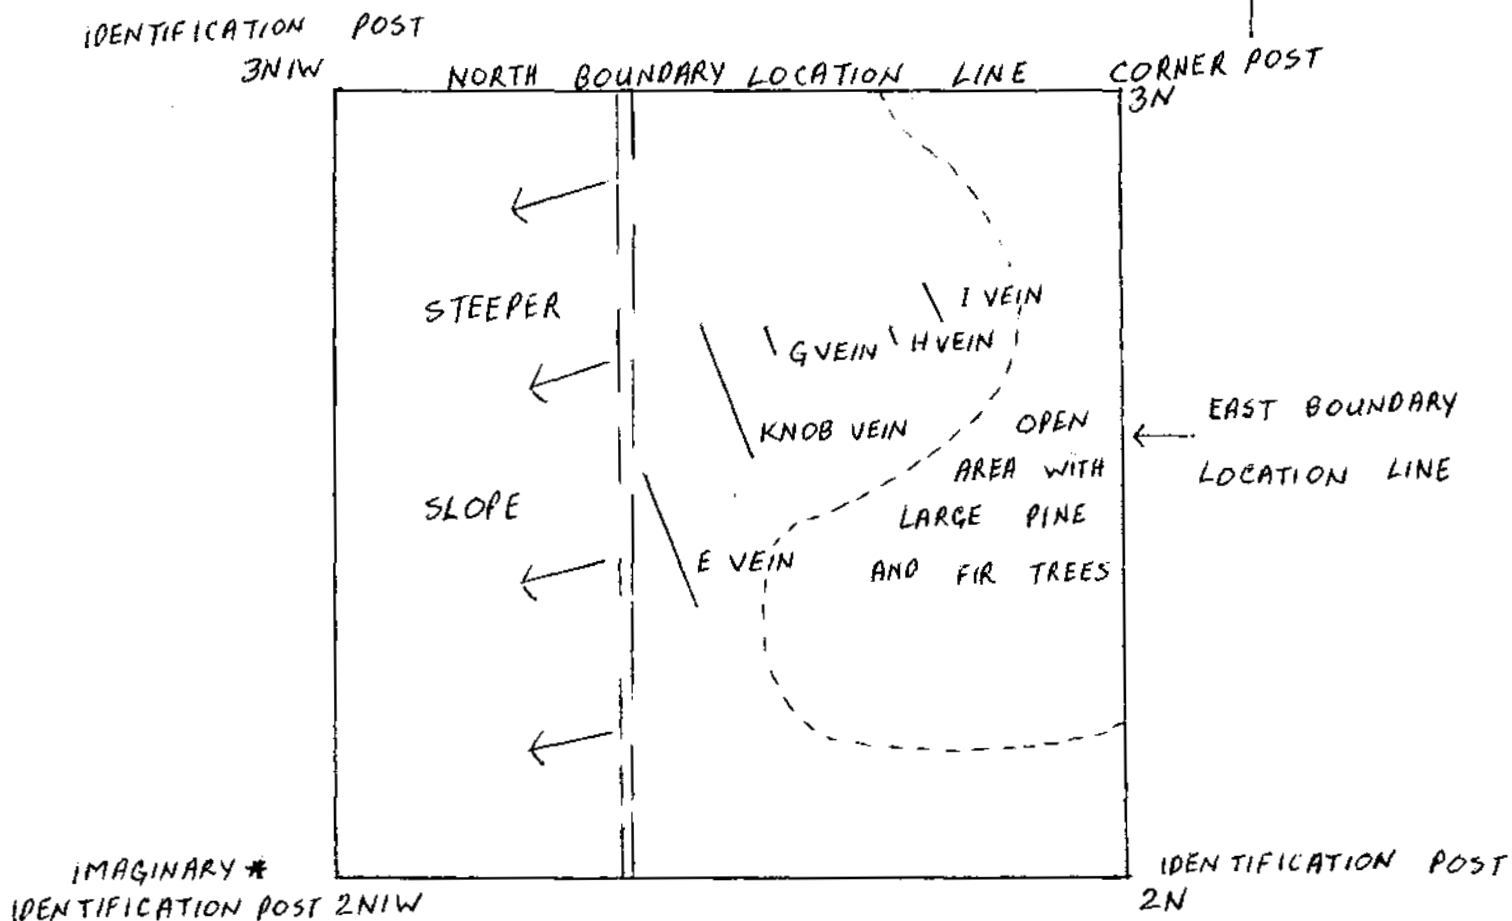 IDENTIFICATION POST
3N1W
NORTH BOUNDARY LOCATION LINE
CORNER POST
3N
STEEPER
SLOPE
I VEIN
G VEIN
H VEIN
KNOB VEIN
E VEIN
OPEN
AREA WITH
LARGE PINE
AND FIR TREES
EAST BOUNDARY
LOCATION LINE
IMAGINARY *
IDENTIFICATION POST 2N1W
IDENTIFICATION POST
2N